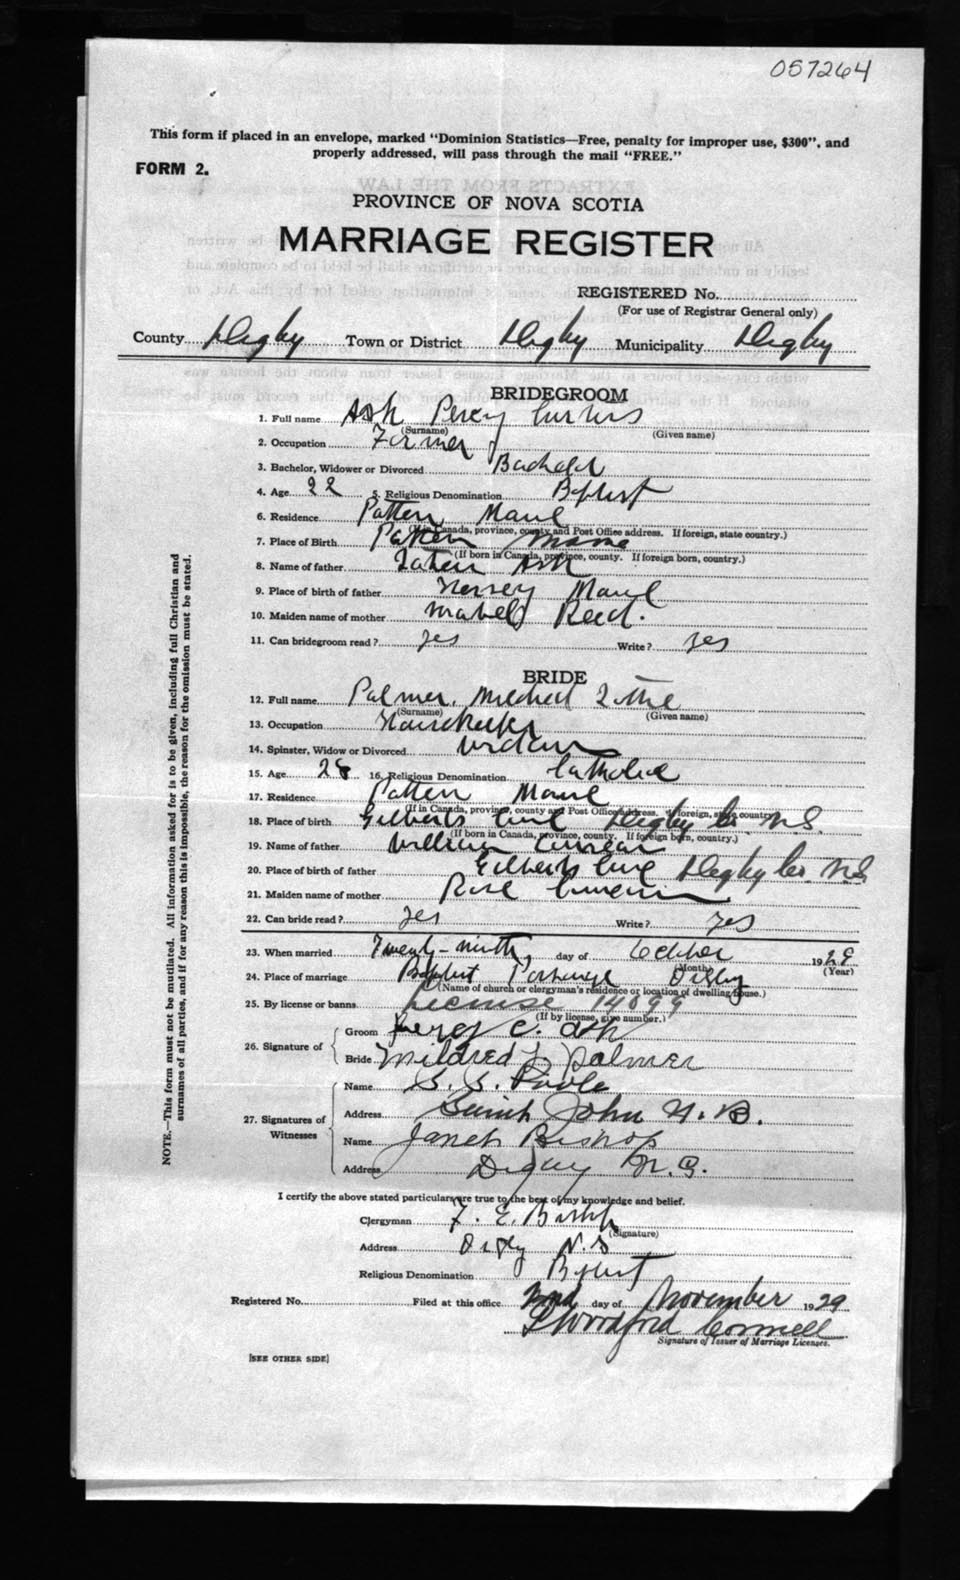 057264
This form if placed in an envelope, marked "Dominion Statistics—Free, penalty for improper use, $300", and
properly addressed, will pass through the mail "FREE."
FORM 2.
PROVINCE OF NOVA SCOTIA
MARRIAGE REGISTER
REGISTERED No.
(For use of Registrar General only)
County Digby Town or District Digby Municipality Digby
BRIDEGROOM
1. Full name Ash Percy Curtis
(Surname) (Given name)
2. Occupation Farmer
3. Bachelor, Widower or Divorced Bachelor
4. Age 22 5. Religious Denomination Baptist
6. Residence Patten Maine
(If in Canada, province, county and Post Office address. If foreign, state country.)
7. Place of Birth Patten Maine
(If born in Canada, province, county. If foreign born, country.)
8. Name of father Ash
9. Place of birth of father Hersey Maine
10. Maiden name of mother Mabel Reed.
11. Can bridegroom read? yes Write? yes
BRIDE
12. Full name Palmer, Mildred
(Surname) (Given name)
13. Occupation Housekeeper
14. Spinster, Widow or Divorced Widow
15. Age 28 16. Religious Denomination Catholic
17. Residence Patten Maine
(If in Canada, province, county and Post Office address. If foreign, state country.)
18. Place of birth Gilberts Cove Digby Co. N.S.
(If born in Canada, province, county. If foreign born, country.)
19. Name of father William
20. Place of birth of father Gilberts Cove Digby Co. N.S.
21. Maiden name of mother Rose
22. Can bride read? yes Write? yes
23. When married Twenty-ninth, day of October 1929
(Month) (Year)
24. Place of marriage Baptist Parsonage Digby
(Name of church or clergyman's residence or location of dwelling house.)
25. By license or banns License 14099
(If by license, give number.)
26. Signature of Groom Percy C. Ash
Bride Mildred L Palmer
27. Signatures of Witnesses
Name S. S. Poole
Address Saint John N.B.
Name Janet Bishop
Address Digby N.S.
I certify the above stated particulars are true to the best of my knowledge and belief.
Clergyman F. E.
(Signature)
Address Digby N.S
Religious Denomination Baptist
Registered No. Filed at this office 2nd day of November 1929
Woodford Connell
Signature of Issuer of Marriage Licenses.
[SEE OTHER SIDE]
NOTE.—This form must not be mutilated. All information asked for is to be given, including full Christian and
surnames of all parties, and if for any reason this is impossible, the reason for the omission must be stated.